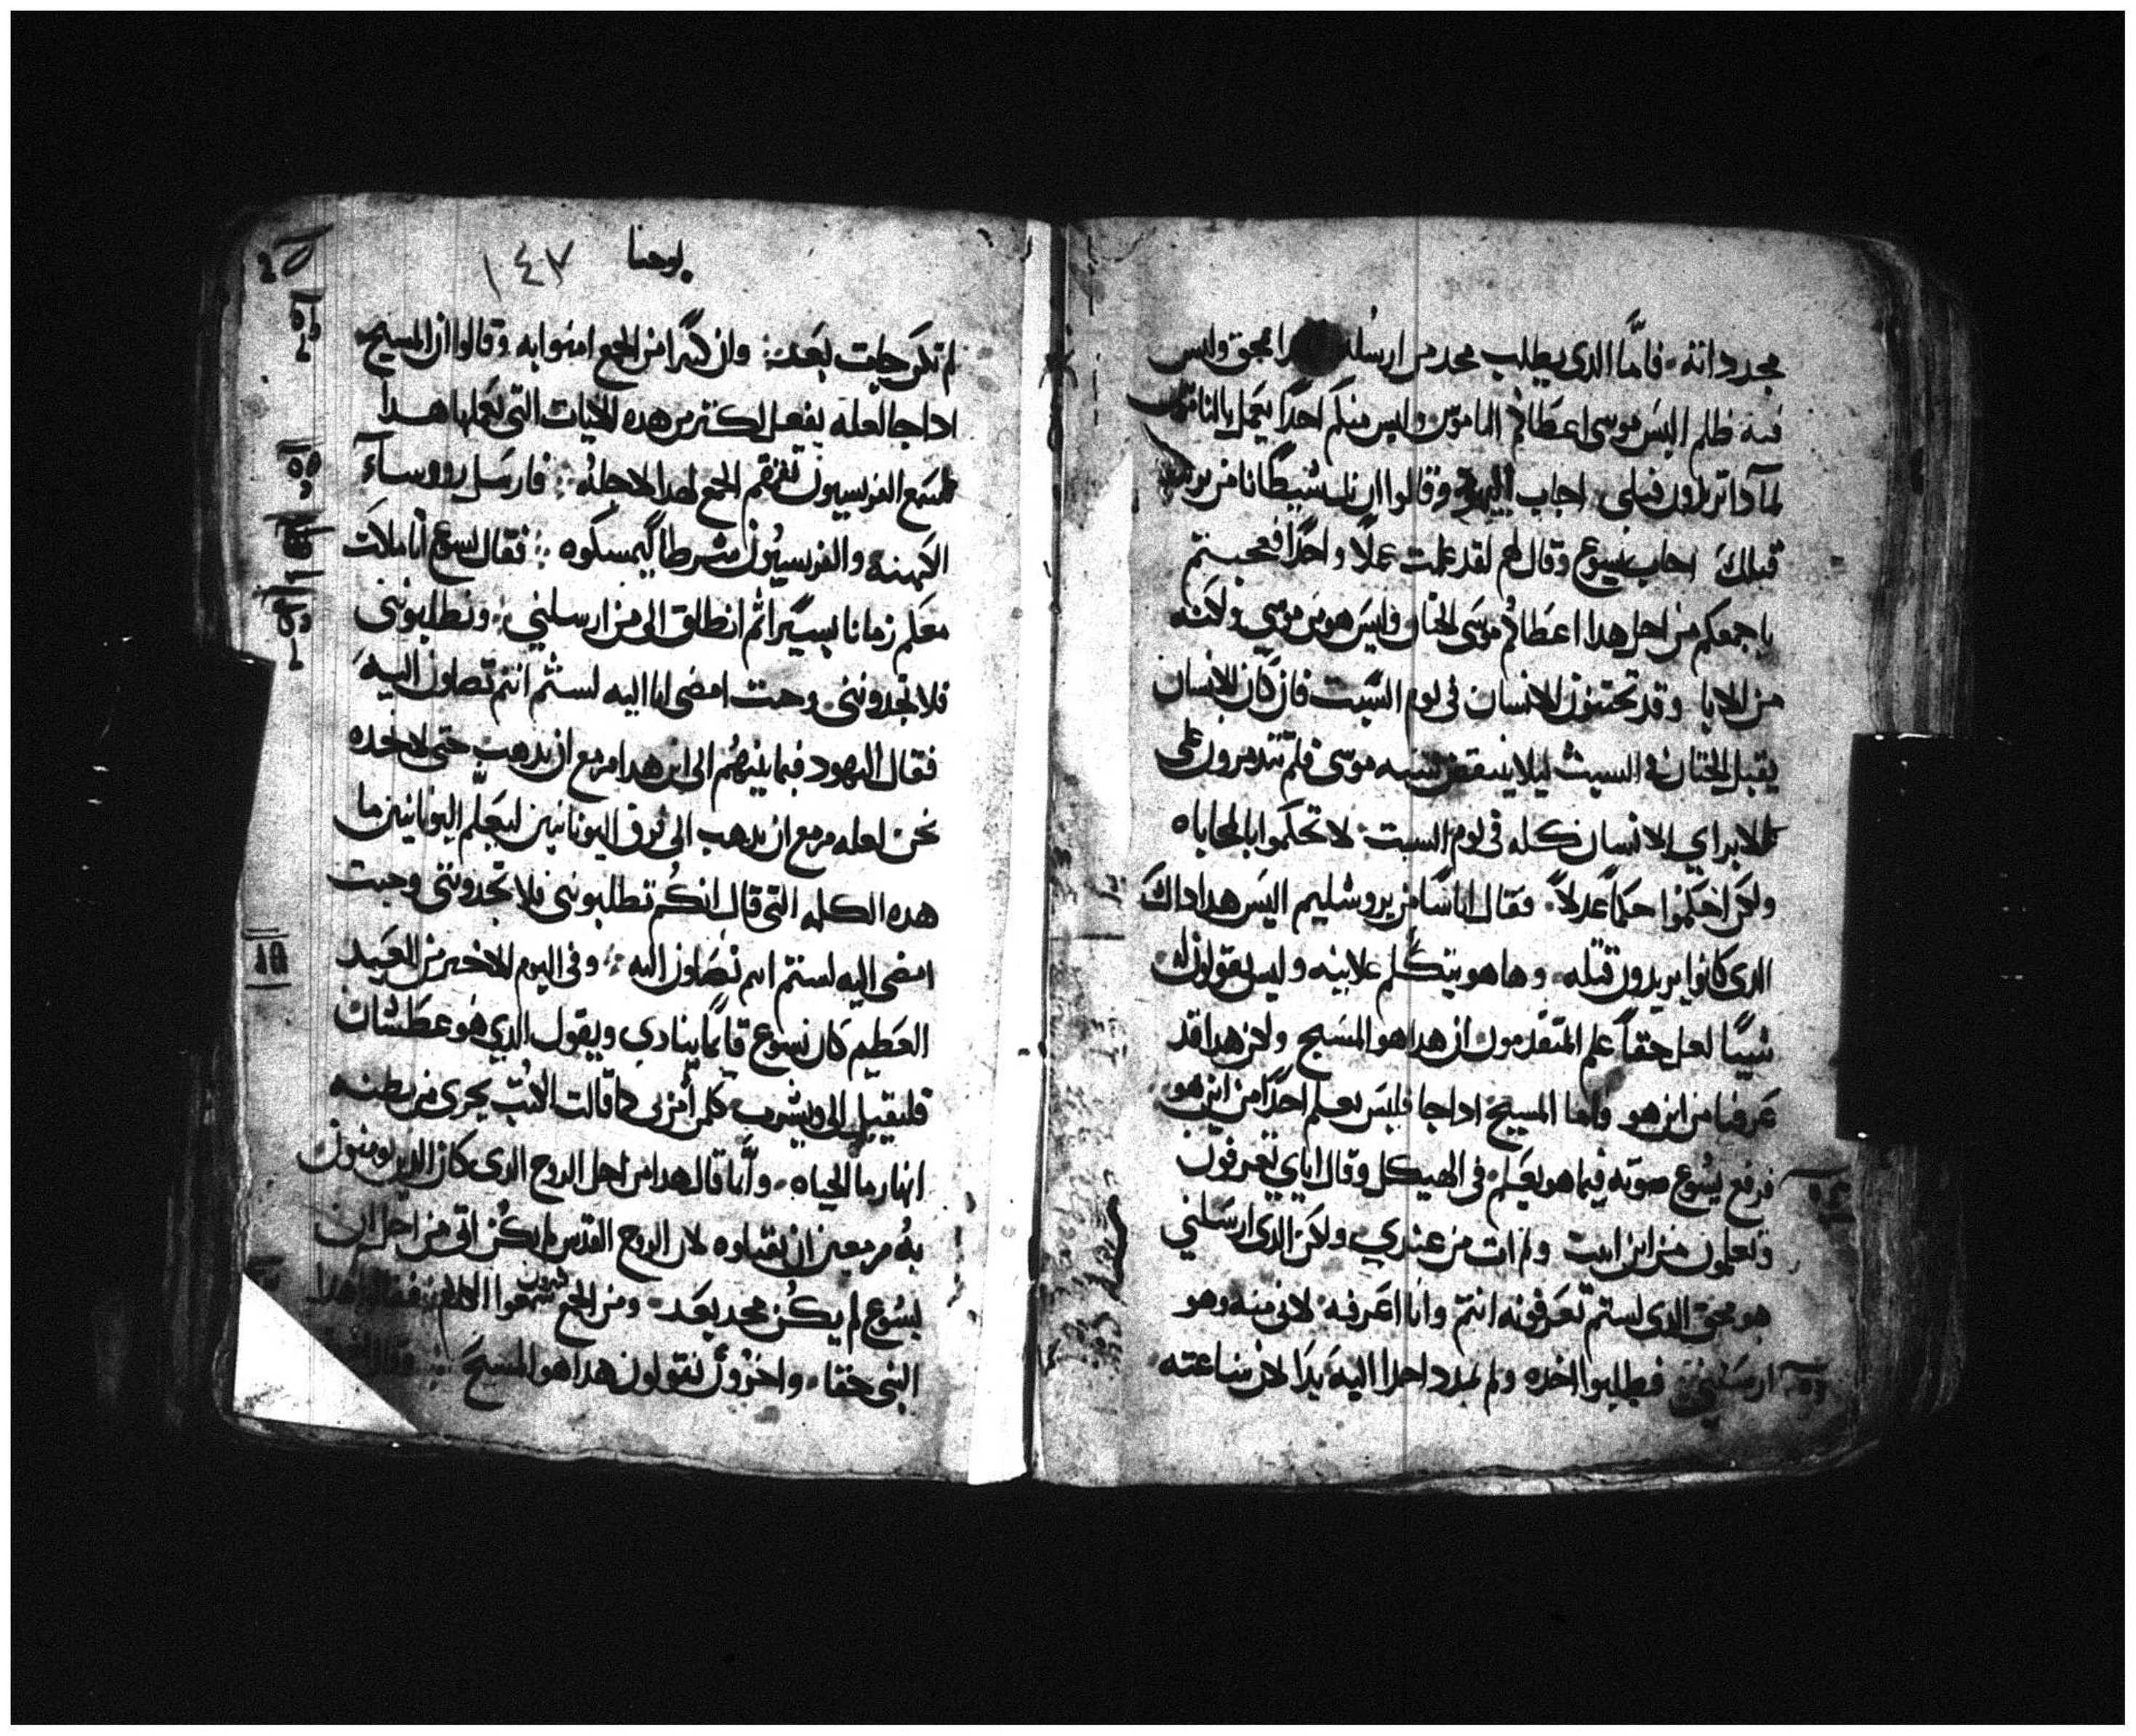 مجد ذاته ۰ فاما الدى يطلب مجد من ارسله محق وليس
فيه ظلم اليس موسى اعطاكم الناموس وليس منكم احدًا يعمل بالناموس
لمادا تريدون قبلى اجاب وقالوا ان بك شيطانا من يريد
قبلك اجاب يسوع وقال لهم لقد عملت عملًا واحدًا فعجبتم
باجمعكم من اجل هدا اعطاكم موسى الختان وليس هو من موسى ولكنه
من الابا وقد تختنون الانسان فى يوم السبت فان كان الانسان
يقبل الختان فى السبت ليلا ينتقض سنه موسى فلم تتدمرون على
لابراي الانسان كله فى يوم السبت ۰ لا تحكموا بالمحاباه
ولكن احكموا حكمًا عدلًا ۰ فقال اناسًا من يروشليم اليس هدا داك
الدى كانوا يريدون قتله ۰ وها هو يتكلم علانيه وليس يقولون له
شييًا لعل حقًا علم المتقدمون ان هدا هو المسيح ولكن هدا قد
عرفنا من اين هو واما المسيح ادا جا فليس يعلم احدًا من اين هو
فرفع يسوع صوته فيما هو يعلم فى الهيكل وقال اياي تعرفون
وتعلمون من اين اتيت ولم ات من عندي ولكن الدى ارسلني
هو محق الدى لستم تعرفونه انتم وانا اعرفه لانى منه وهو
ارسلني فطلبوا اخده ولم يمدد احدا اليه يدا لان ساعته
يوحنا ١٤٧
لم تكن جات بعد ۰ وان كثيرا من الجمع امنوا به وقالوا ان المسيح
ادا جا لعله يفعل اكتر من هده الايات التى يعملها هدا
فسمع الفريسيون تقمقم الجمع لهدا لاجله ۰ فارسل رووسآء
الكهنه والفريسيون شرطا ليمسكوه ۰ فقال يسوع انا ملات
معكم زمانا يسيرا ثم انطلق الى من ارسلني ۰ وتطلبونى
فلا تجدونى وحيت امضى انا اليه لستم انتم تصلون اليه
فقال اليهود فيما بينهم الى اين هدا مزمع ان يدهب حتى لا نجده
نحن لعله مزمع ان يدهب الى فرق اليونانيين ليعلم اليونانيين ما
هده الكلمه التى قال انكم تطلبونى فلا تجدونى وحيت
امضى اليه لستم انتم تصلون اليه ۰ وفى اليوم الاخير من العيد
العظيم كان يسوع قايمًا ينادي ويقول الدي هو عطشان
فليقبل الى ويشرب كلمن أمن بى كما قالت الكتب يجرى من بطنه
انهار ما الحياه ۰ وانما قال هدا من اجل الروح الدى كان الدين يومنون
به مزمعين ان يقبلوه لان الروح القدس لم يكن اتى من اجل ان
يسوع لم يكن مجد بعد ۰ ومن الجمع كثيرون سمعوا الكلام فقالوا هدا
النبى حقا ۰ واخرون يقولون هدا هو المسيح